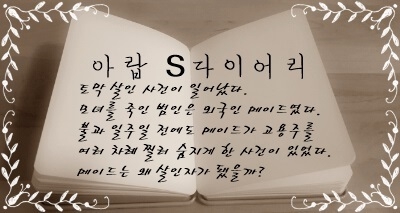 아랍 S다이어리
토막 살인 사건이 일어났다.
모녀를 죽인 범인은 외국인 메이드였다.
불과 일주일 전에도 메이드가 고용주를
여러 차례 찔러 숨지게 한 사건이 있었다.
메이드는 왜 살인자가 됐을까?